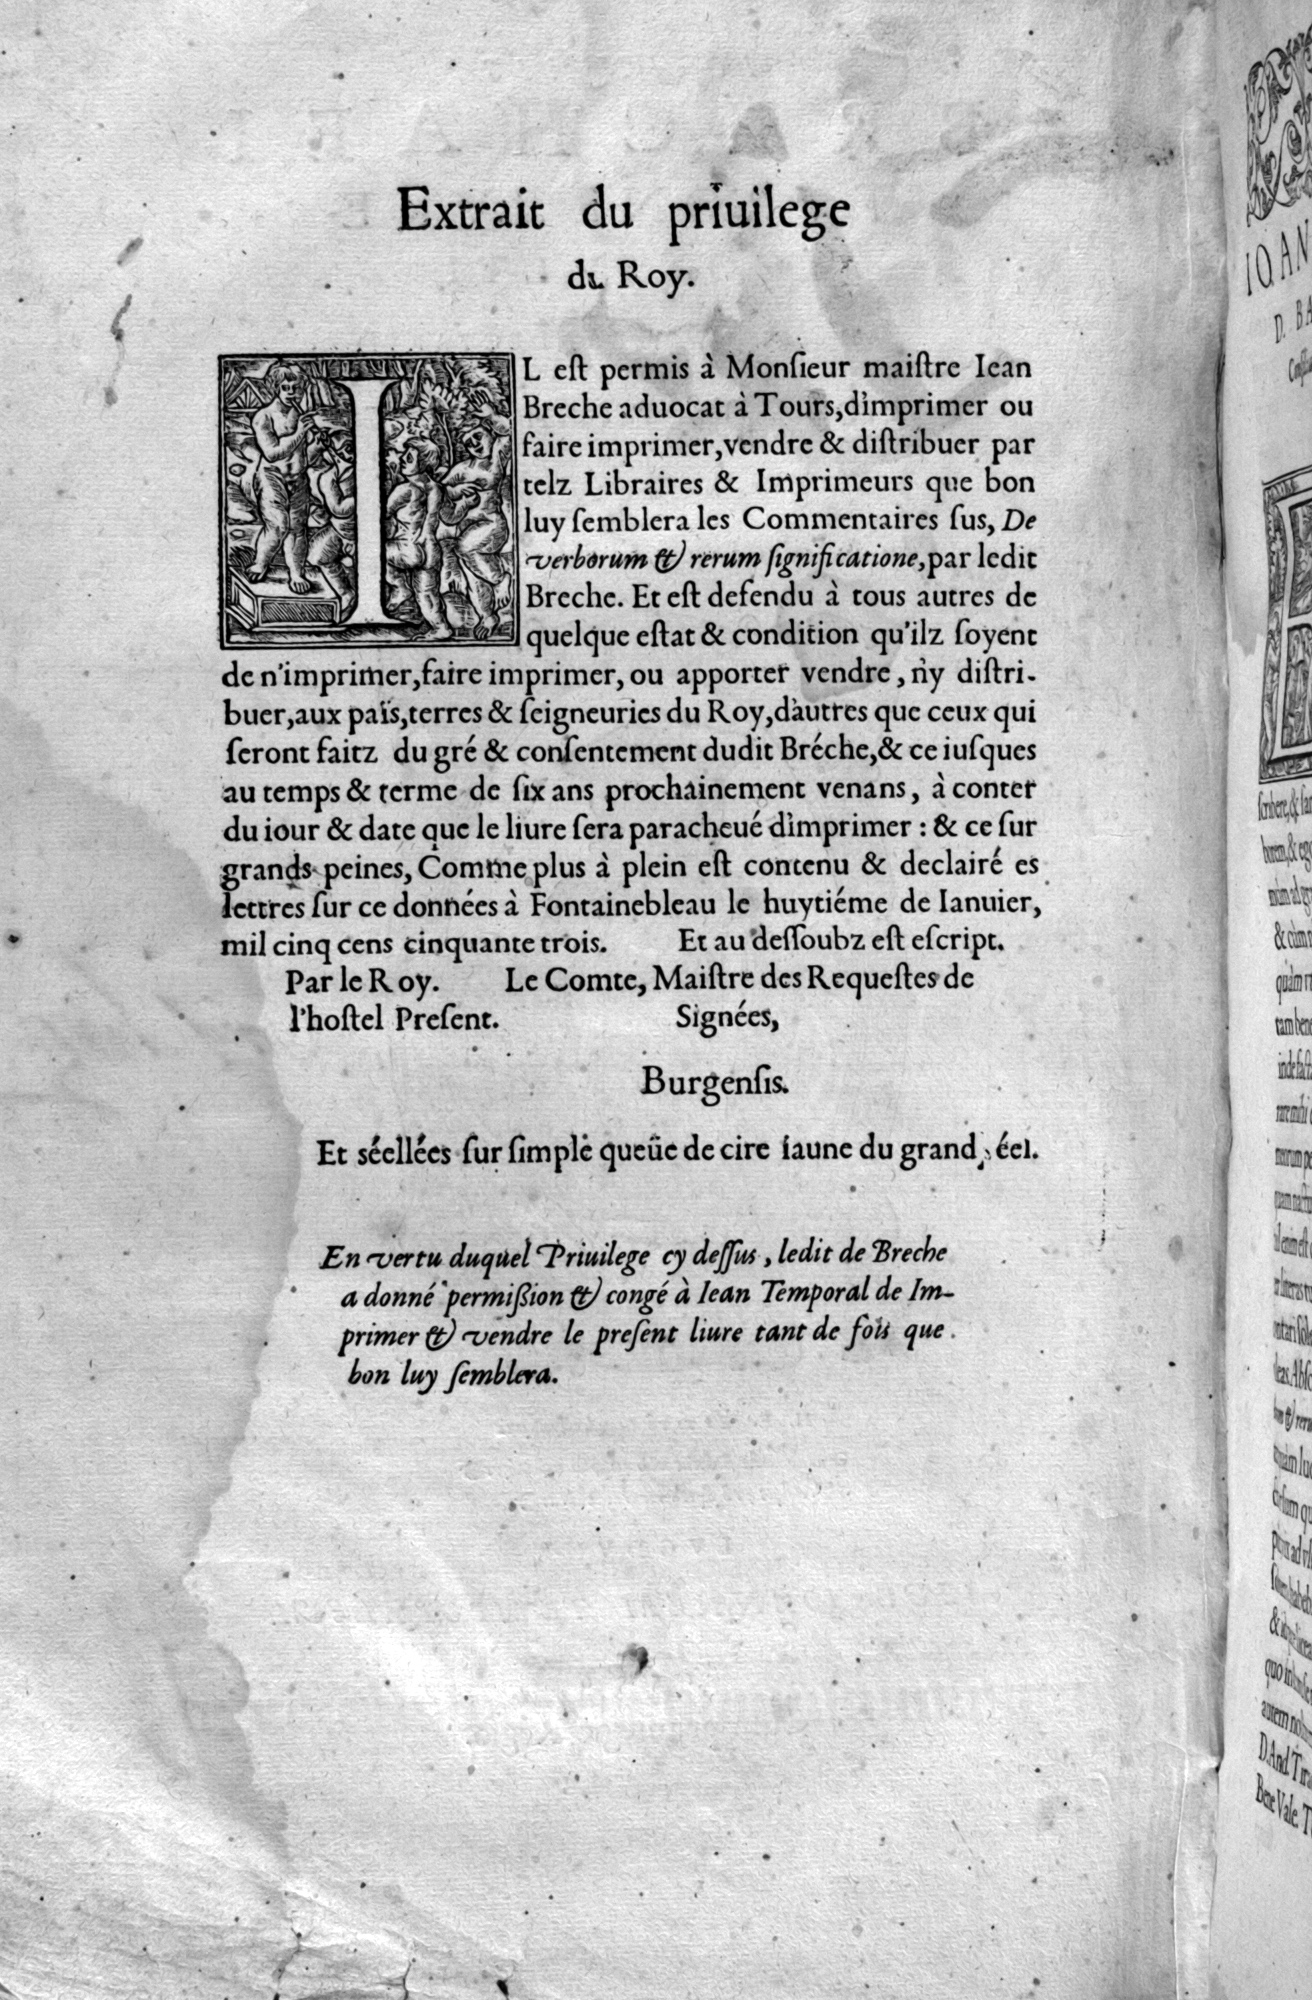 Extrait du priuilege
du Roy.
IL est permis à Monsieur maistre Iean
Breche aduocat à Tours, d'imprimer ou
faire imprimer, vendre & distribuer par
telz Libraires & Imprimeurs que bon
luy semblera les Commentaires sus, De
verborum & rerum significatione, par ledit
Breche. Et est defendu à tous autres de
quelque estat & condition qu'ilz soyent
de n'imprimer, faire imprimer, ou apporter vendre, n'y distri-
buer, aux païs, terres & seigneuries du Roy, d'autres que ceux qui
seront faitz du gré & consentement dudit Bréche, & ce iusques
au temps & terme de six ans prochainement venans, à conter
du iour & date que le liure sera paracheué d'imprimer : & ce sur
grands peines, Comme plus à plein est contenu & declairé es
lettres sur ce données à Fontainebleau le huytiéme de Ianuier,
mil cinq cens cinquante trois. Et au dessoubz est escript.
Par le Roy. Le Comte, Maistre des Requestes de
l'hostel Present. Signées,
Burgensis.
Et séellées sur simple queüe de cire iaune du grand séel.
En vertu duquel Priuilege cy dessus, ledit de Breche
a donné permission & congé à Iean Temporal de Im-
primer & vendre le present liure tant de fois que
bon luy semblera.
IOAN
D. BA
scribere, & 
& cùm
quàm
tam bene
D. And. Tir
Bene Vale. T